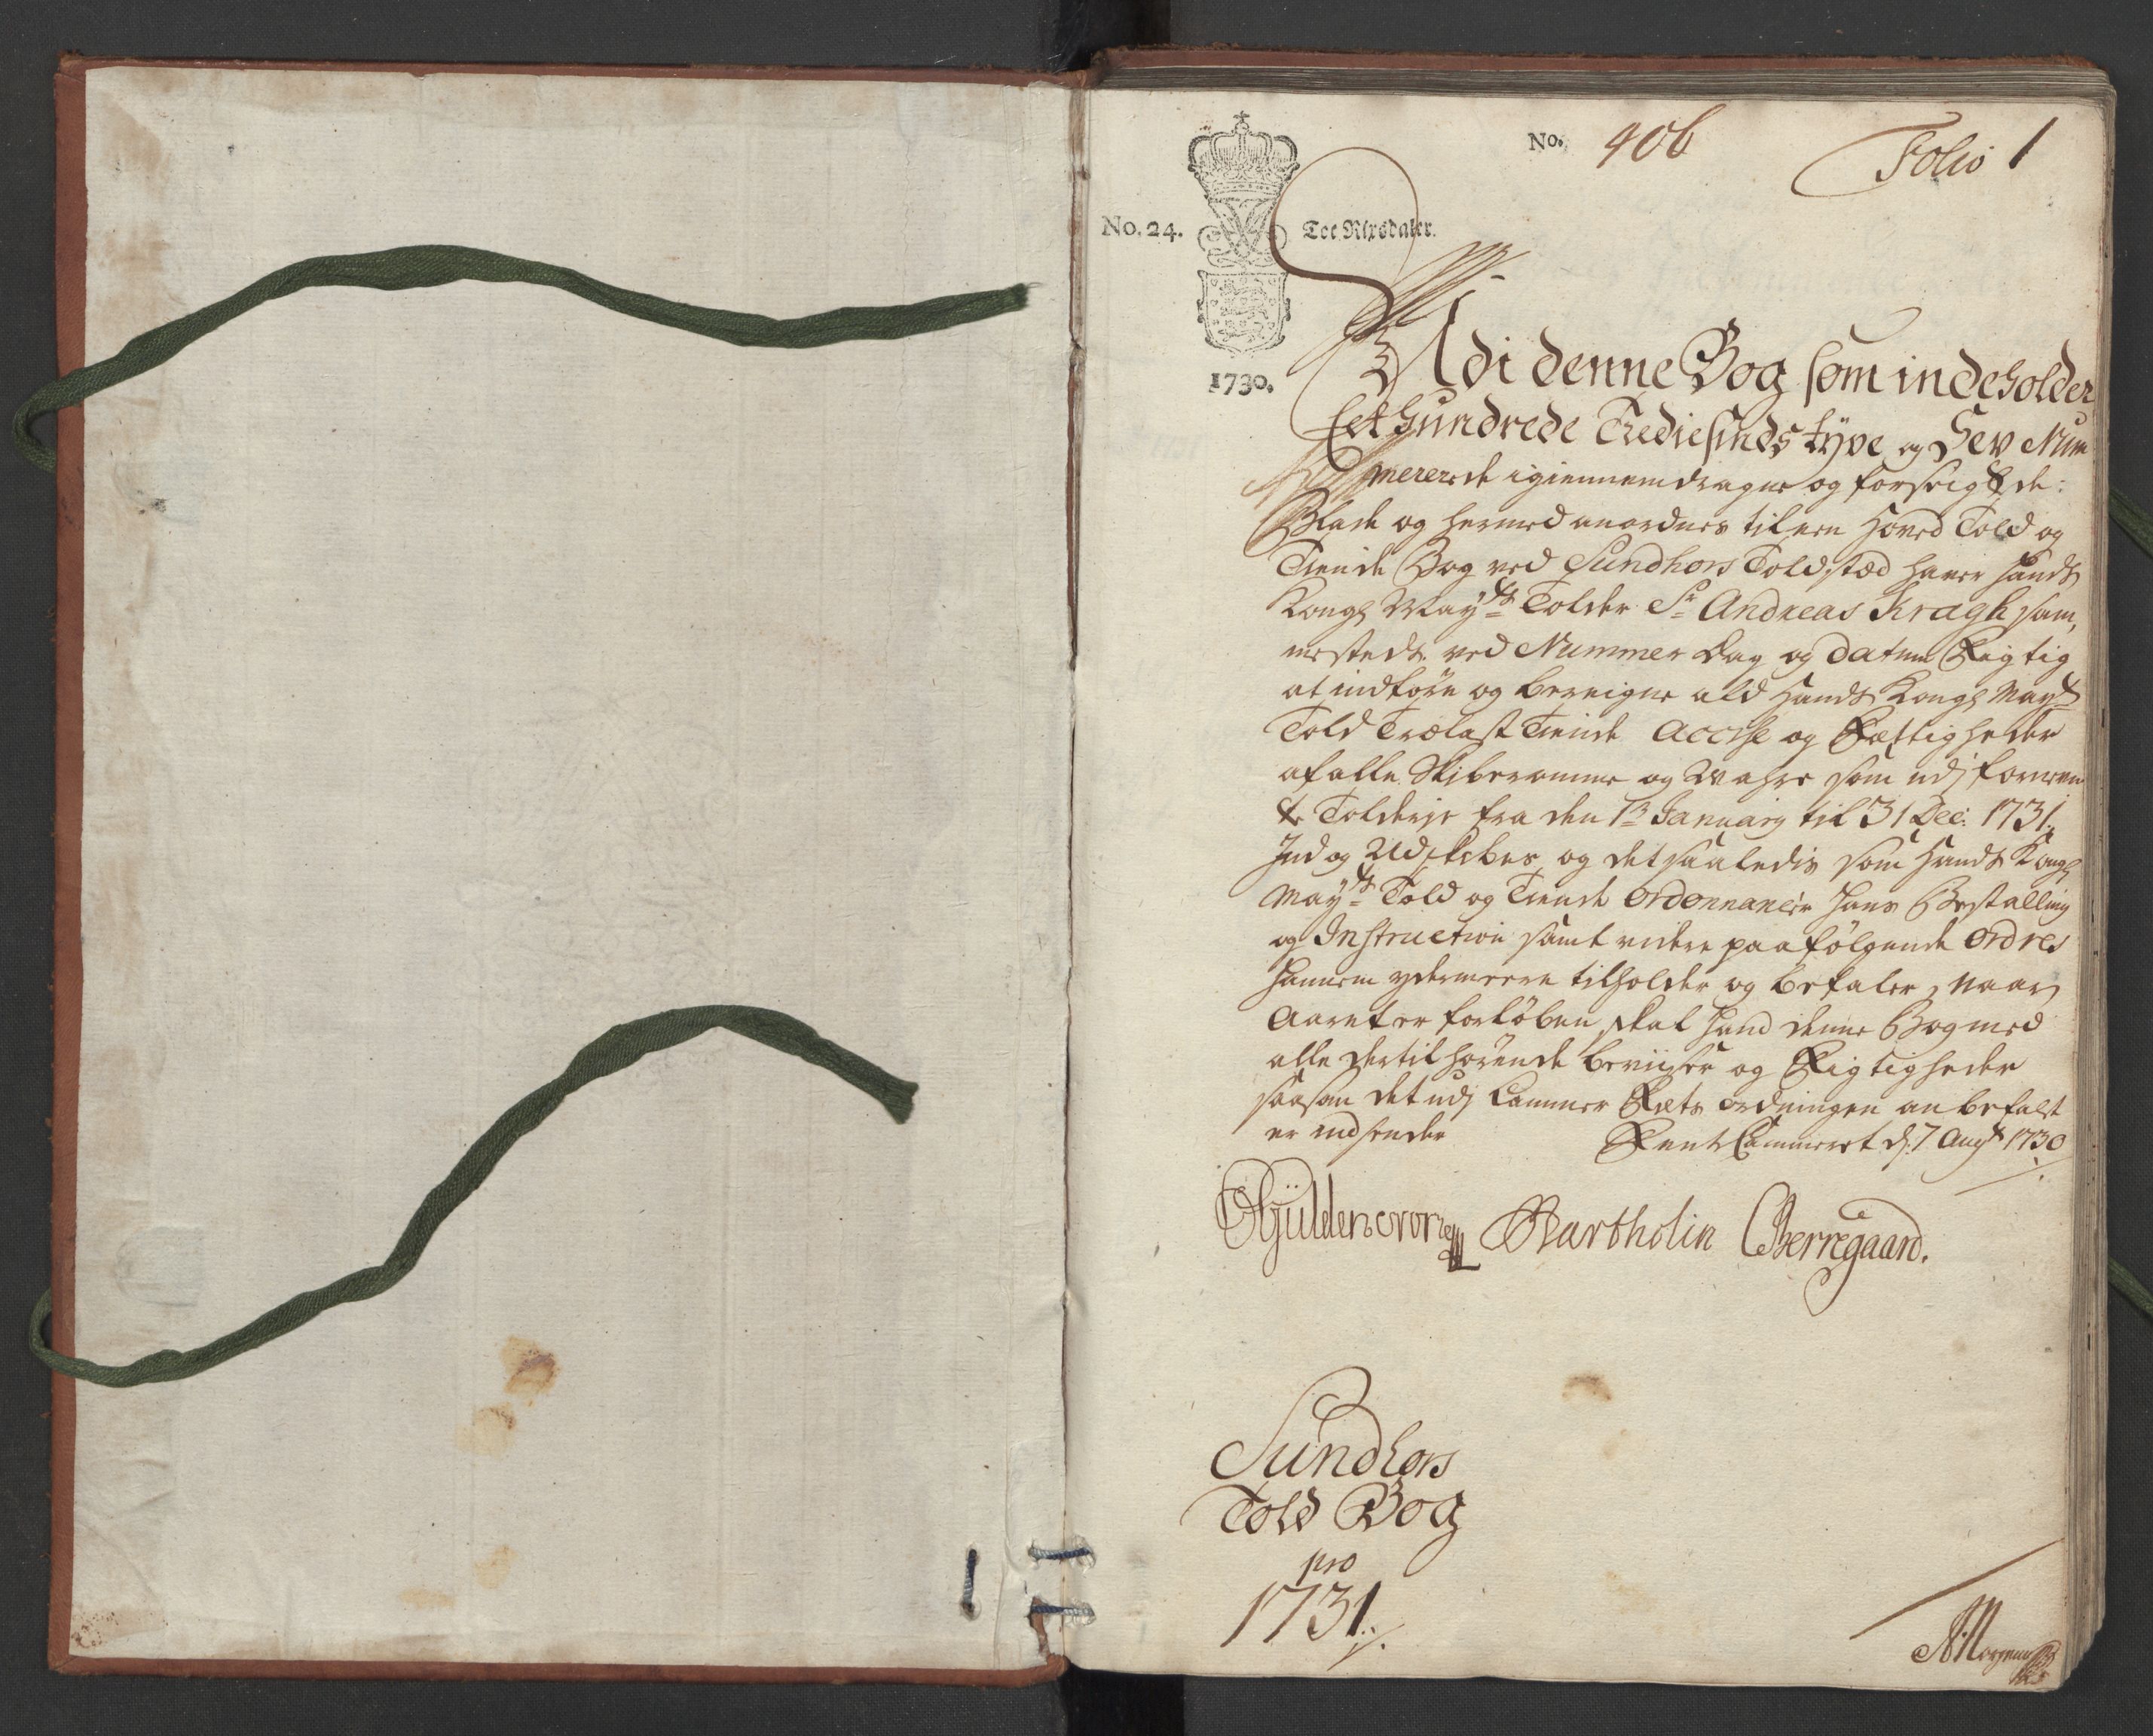 No. 406
Folio 1
No. 24. Toe Rixsdaler.
1730.
Udi denne Bog som indeholder
Eet Hundrede Trediesinds tyve og Sex Num
mererede igiennemdragne og forseiglede
Blade og hermed anordnes til een Hoved Told og
Tiende Bog ved Sundhors Toldsted haver Hands
Kongl Mayts Tolder Sr Andreas Kragh sam,
mesteds ved Nummer Dag og Datum Rigtig
at indføre og beregne ald Hands Kongl Mayts
Told Trælast Tiende Accise og Rettigheder
af alle Skibsromme og Wahre som udj forneven
te Tolderie fra den 1te January til 31 Dec: 1731.
Ind og Udskibes og det saaledis som Hands Kongl
Mayts Told og Tiende ordonnancer hans Bestalling
og Instruction samt videre paafølgende ordres
hannem ydermeere tilholder og befaler, Naar
Aaret er forløben skal hand denne Bog med
alle dertil hørende beviiser og Rigtigheder
saasom det udj Cammer Rets ordningen anbefalet
er indsende Rente Cammeret d: 7 Augt 1730
Güldencrone Bartholin Berregaard.
Sundhors
Told Bog
pro
1731.